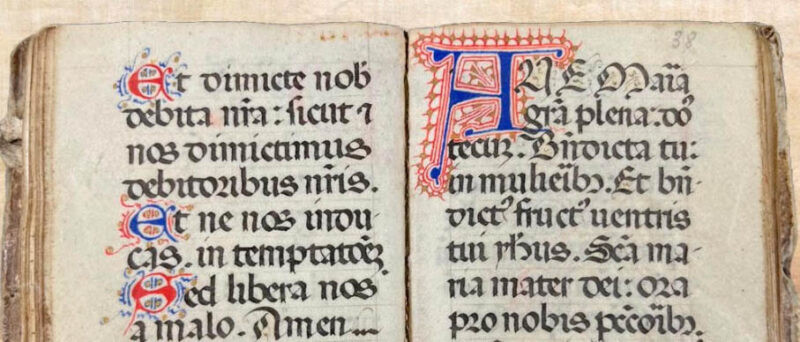 Et dimicte nob̄
debita nr̄a : sicut ⁊
nos dimictimus
debitoribus nr̄is.
Et ne nos indu-
cas. in temptatōēꝫ
Sed libera nos
a malo. Amen...
38
AUE Maīa
grā plena: dōs
tecuꝫ. Bn̄dicta tu:
in mulieībꝫ. Et bn̄-
dictꝰ fructꝰ uentris
tui yhus. Sc̄a ma-
ria mater dei: ora
pro nobis pc̄coībꝫ.